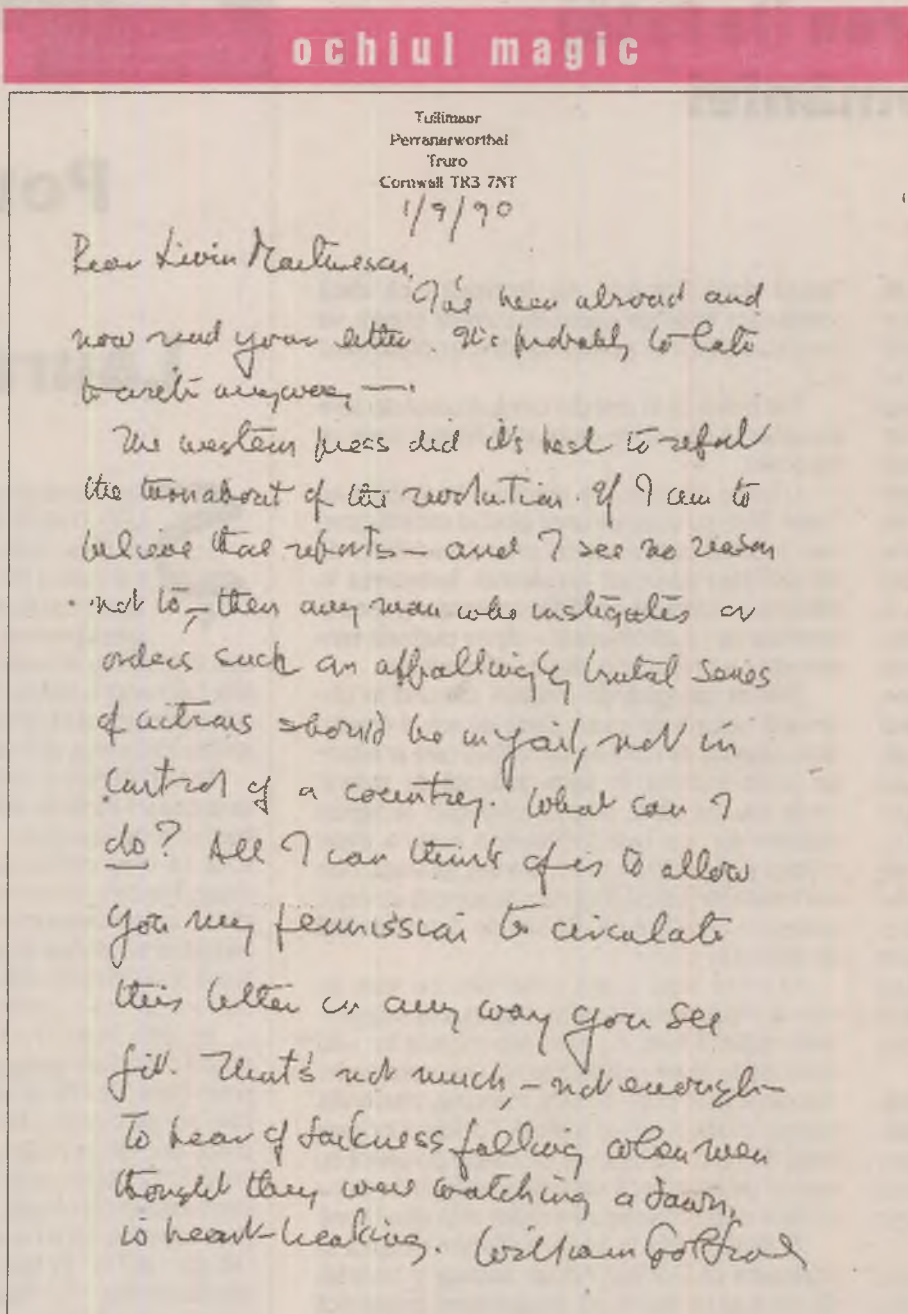 ochiul magic
Tullimaar
Perranarworthal
Truro
Cornwall TR3 7NT
1/9/90
Dear Liviu Martinescu,
I've been abroad and
now read your letter. It's probably to late
to write anyway —.
The western press did it's best to report
the turnabout of the revolution. If I am to
believe that reports — and I see no reason
not to, — then any man who instigates or
orders such an appallingly brutal series
of actions should be in jail, not in
control of a country. What can I
do? All I can think of is to allow
you my permission to circulate
this letter in any way you see
fit. That's not much, — not enough —
To hear of darkness falling when men
thought they were watching a dawn,
is heart-breaking. William Golding